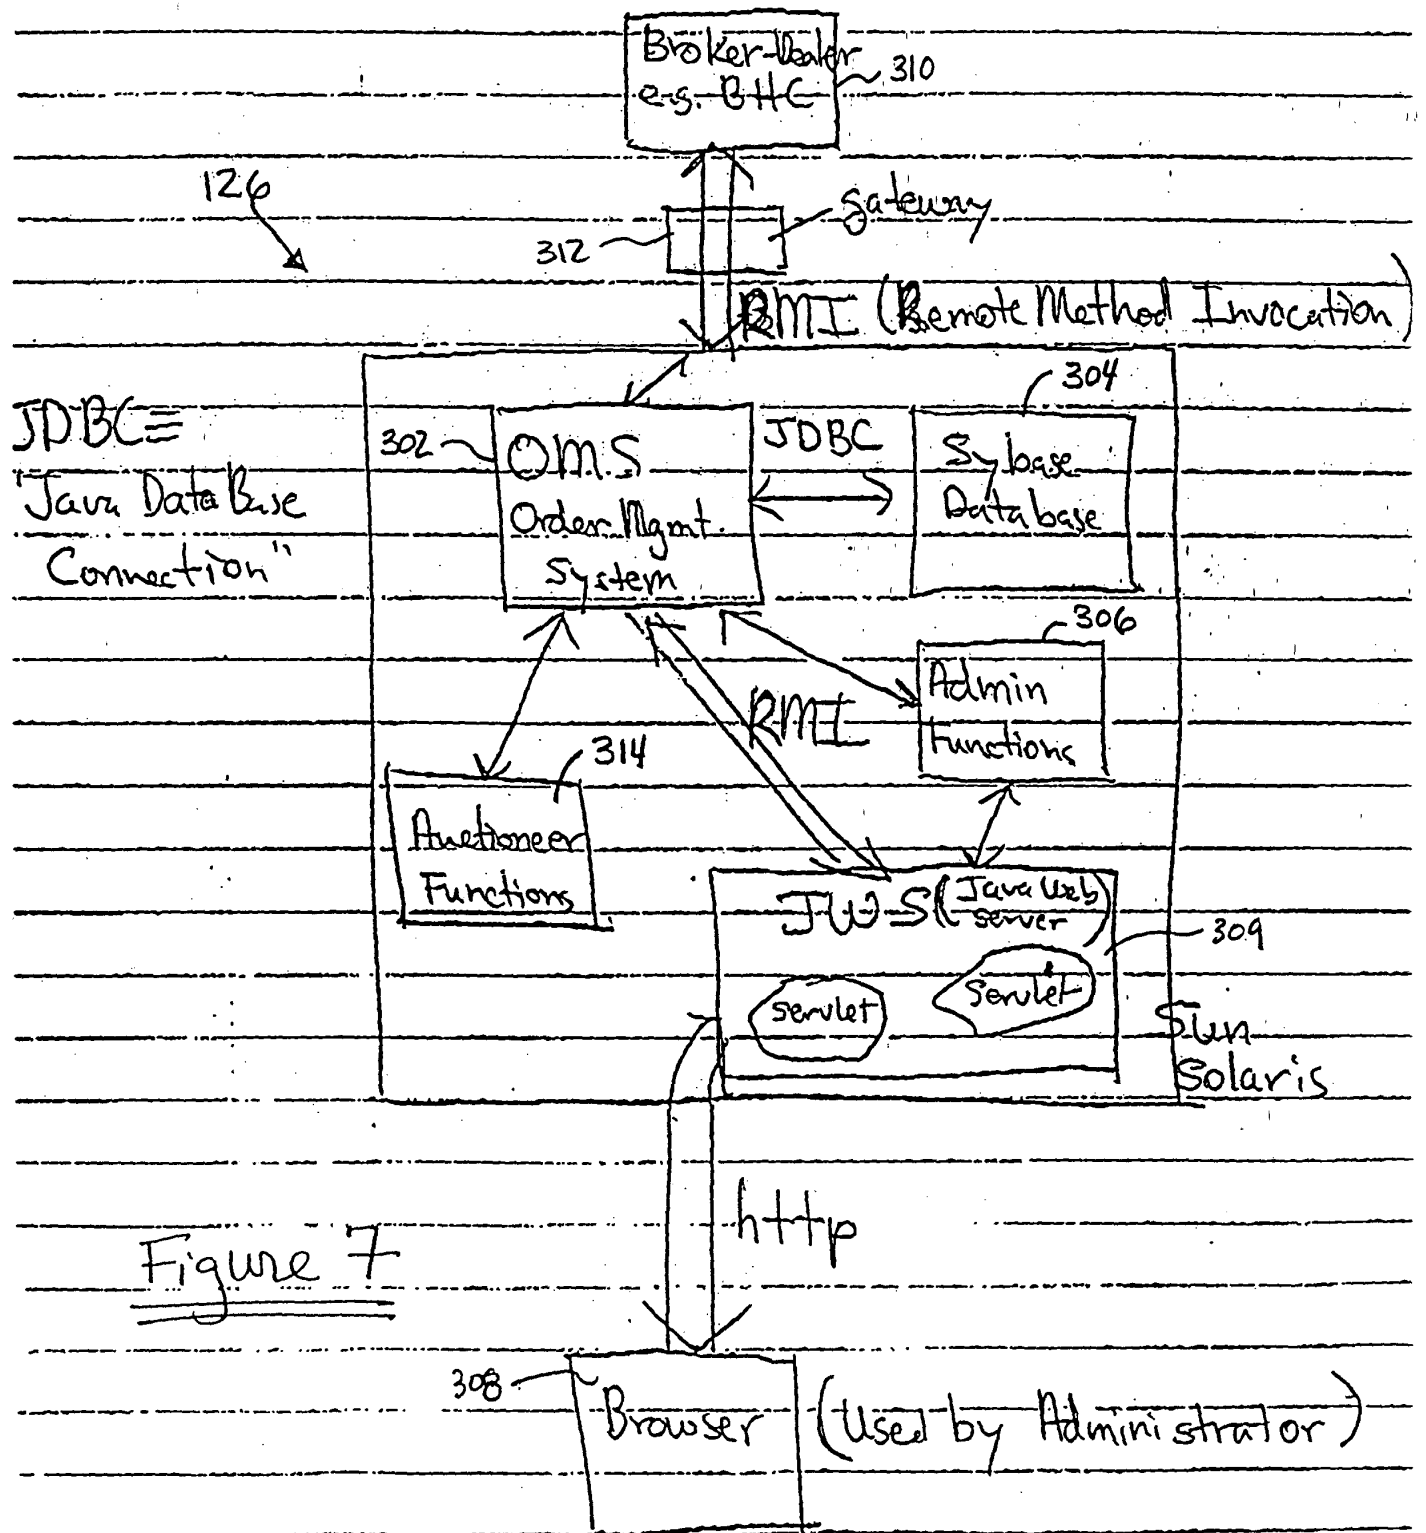 Broker-Dealer
e.g. BHC
310
126
gateway
312
RMI (Remote Method Invocation)
304
JDBC≡
"Java DataBase
Connection"
302
OMS
Order Mgmt.
System
JDBC
Sybase
Database
306
Admin
Functions
RMI
314
Auctioneer
Functions
JWS (Java Web
server)
309
servlet
Servlet
Sun
Solaris
http
Figure 7
308
Browser
(Used by Administrator)